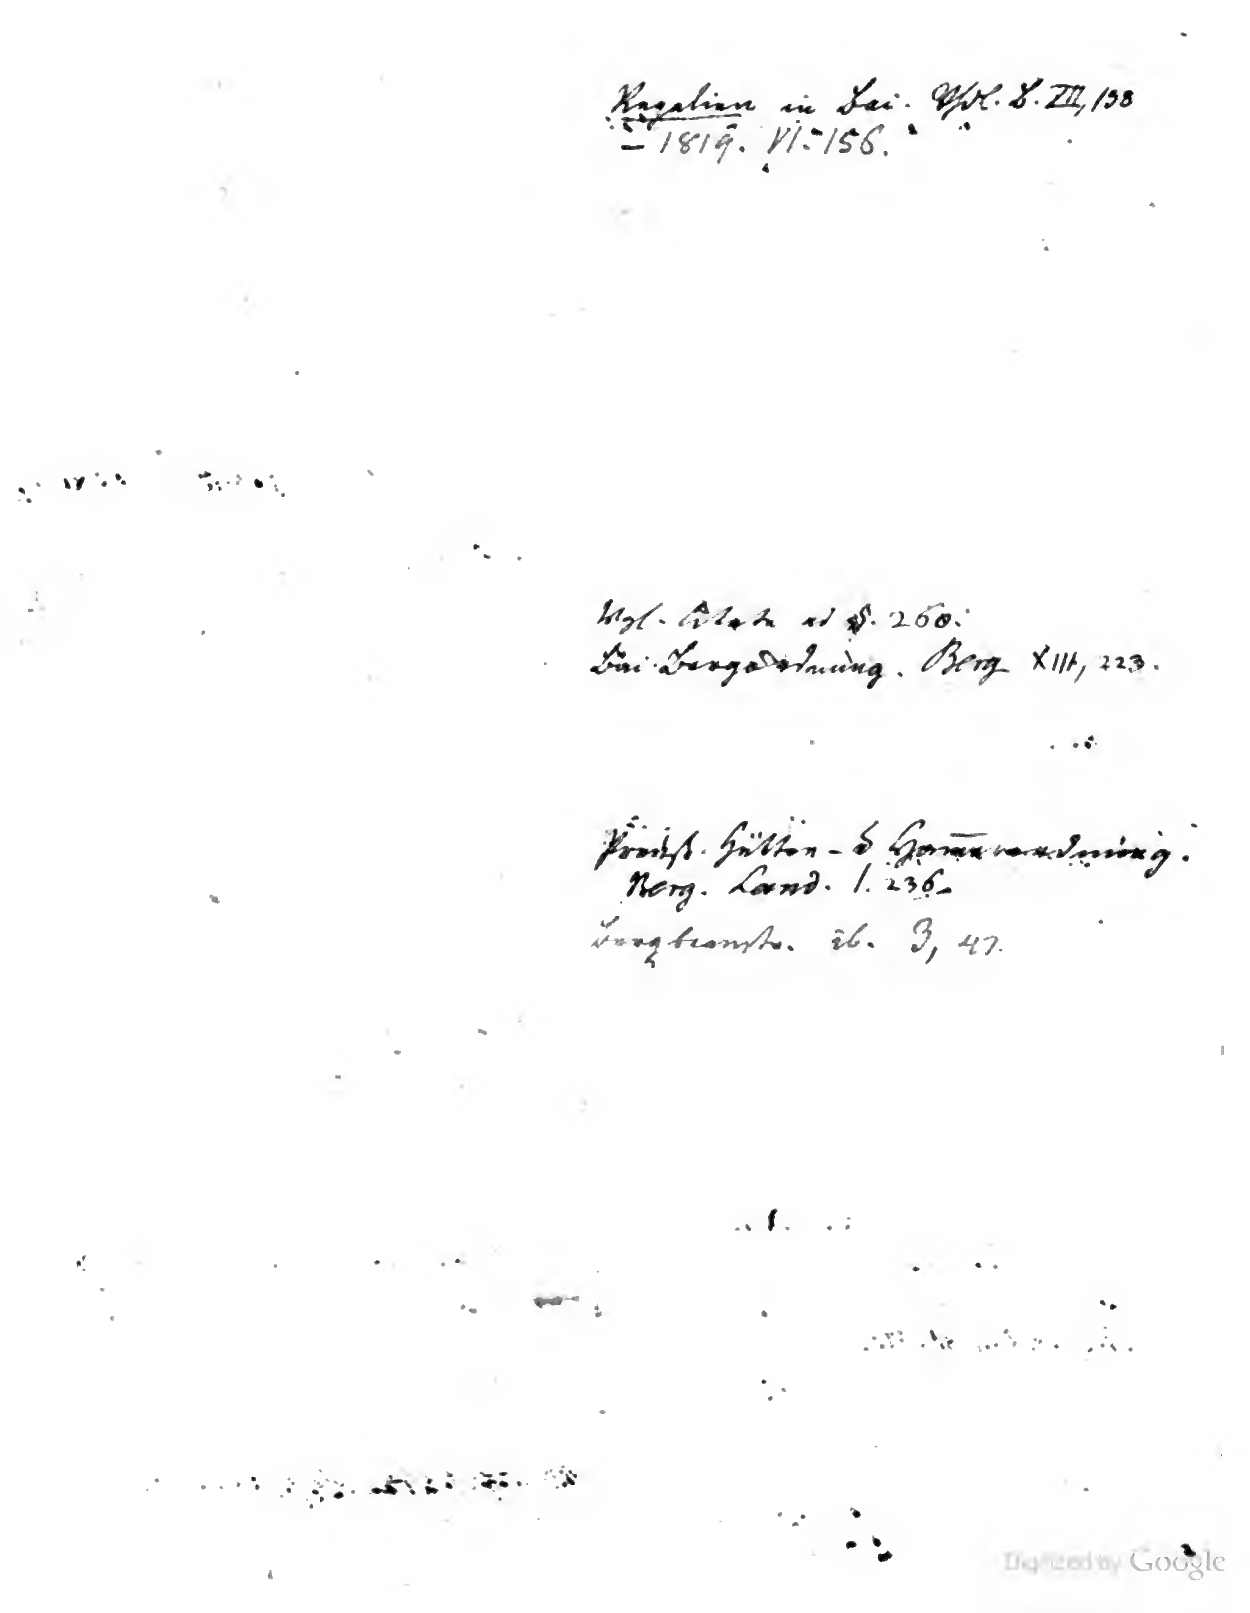 Regalien in Bai. B. XII, 138
– 1819. VI. 156.
Vgl. Citate ad §. 260.
Bai. Bergordnung. Berg XIII, 223.
Preuß. Hütten- & Hammerordnung.
Berg. Land. 1. 236.
Bergbeamte. ib. 3, 47.
Digitized by Google